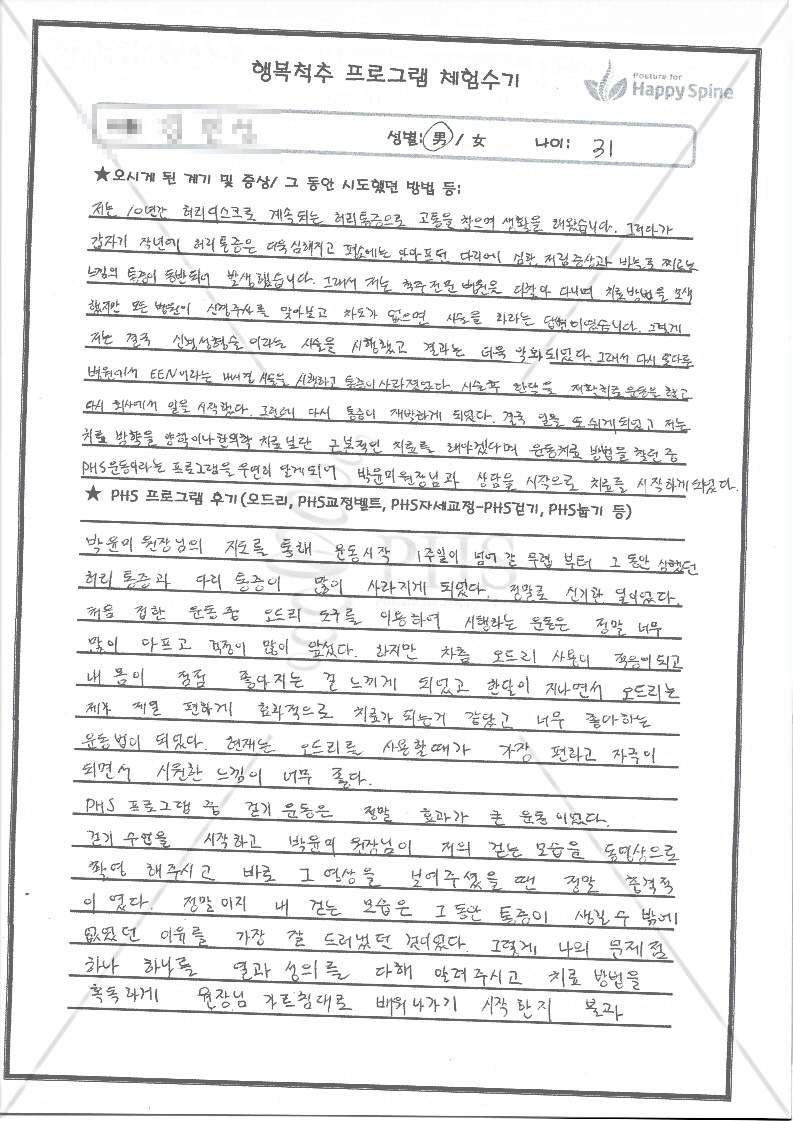 행복척추 프로그램 체험수기
Posture for
Happy Spine
성별: 男 / 女 나이: 31
★오시게 된 계기 및 증상/ 그 동안 시도했던 방법 등:
저는 10년간 허리디스크로 계속되는 허리통증으로 고통을 참으며 생활을 해왔습니다. 그러다가
갑자기 작년에 허리통증은 더욱 심해지고 평소에는 안아프던 다리에 심한 저림증상과 바늘로 찌르는
느낌의 통증이 동반되어 발생했습니다. 그래서 저는 척추전문 병원을 다찾아 다니며 치료방법을 모색
했지만 모든 병원이 신경주사를 맞아보고 차도가 없으면 시술을 하라는 답변이었습니다. 그렇게
저는 결국 신경성형술이라는 시술을 시행했고 결과는 더욱 악화되었다. 그래서 다시 모다른
병원에서 EEN이라는 내시경 시술을 시행하고 통증이 사라졌었다. 시술후 한달을 재활치료운동을 했고
다시 회사에서 일을 시작했다. 그런데 다시 통증이 재발하게 되었다. 결국 일을 또 쉬게되었고 저는
치료 방향을 양학이나 한의학 치료보단 근본적인 치료를 해야겠다며 운동치료 방법을 찾던 중
PHS운동이라는 프로그램을 우연히 알게되어 박윤미원장님과 상담을 시작으로 치료를 시작하게 되었다.
★ PHS 프로그램 후기(오드리, PHS교정벨트, PHS자세교정-PHS걷기, PHS눕기 등)
박윤미 원장님의 지도를 통해 운동시작 1주일이 넘어갈 무렵 부터 그동안 심했던
허리 통증과 다리 통증이 많이 사라지게 되었다. 정말로 신기한 일이었다.
처음 접한 운동 중 오드리 도구를 이용하여 시행하는 운동은 정말 너무
많이 아프고 걱정이 많이 앞섰다. 하지만 차츰 오드리 사용이 적응이 되고
내 몸이 점점 좋아지는 걸 느끼게 되었고 한달이 지나면서 오드리는
제가 제일 편하게 효과적으로 치료가 되는거 같았고 너무 좋아하는
운동법이 되었다. 현재는 오드리를 사용할때가 가장 편하고 자극이
되면서 시원한 느낌이 너무 좋다.
PHS 프로그램 중 걷기 운동은 정말 효과가 큰 운동이었다.
걷기 수업을 시작하고 박윤미 원장님이 저의 걷는 모습을 동영상으로
촬영 해주시고 바로 그 영상을 보여주셨을 땐 정말 충격적
이 었다. 정말이지 내 걷는 모습은 그동안 통증이 생길 수 밖에
없었던 이유를 가장 잘 드러냈던 것이었다. 그렇게 나의 문제점
하나 하나를 열과 성의를 다해 알려주시고 치료 방법을
혹독하게 원장님 가르침대로 배워나가기 시작 한지 불과
PHS